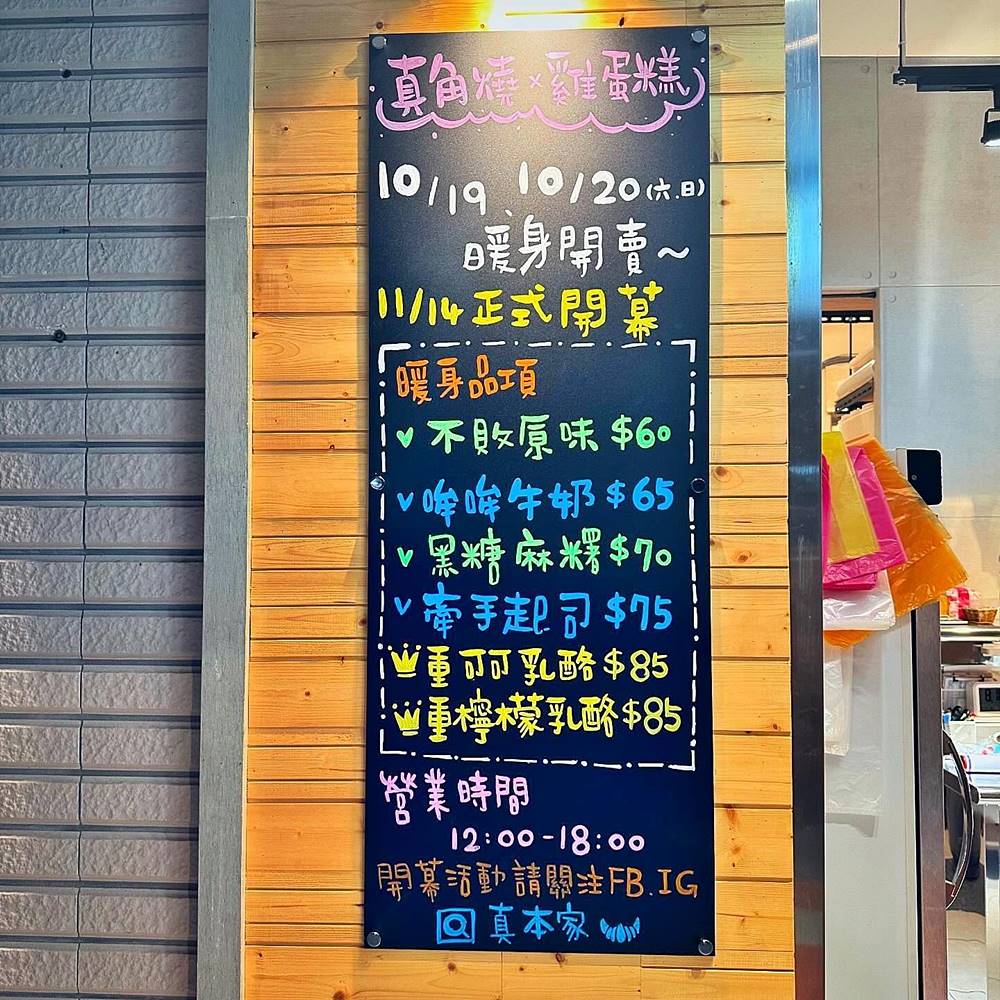 真角燒×雞蛋糕
10/19、10/20(六.日)
暖身開賣~
11/14正式開幕
暖身品項
不敗原味 $60
哞哞牛奶 $65
黑糖麻糬 $70
牽手起司 $75
重可可乳酪 $85
重檸檬乳酪 $85
營業時間
12:00-18:00
開幕活動請關注FB.IG
真本家